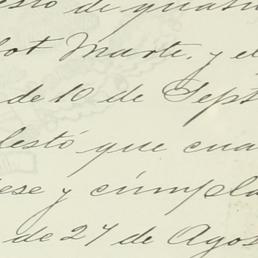 esto de
lot Marte, y el
de 10 de Sept
lestó que cua
ese y cúmpla
de 27 de Agos